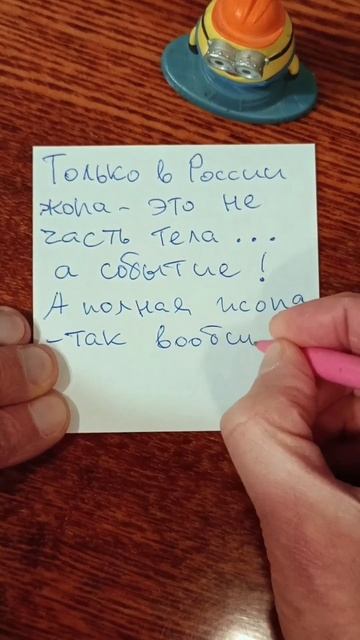 Только в России
жопа - это не
часть тела ...
а событие !
А полная жопа
- так вообщ